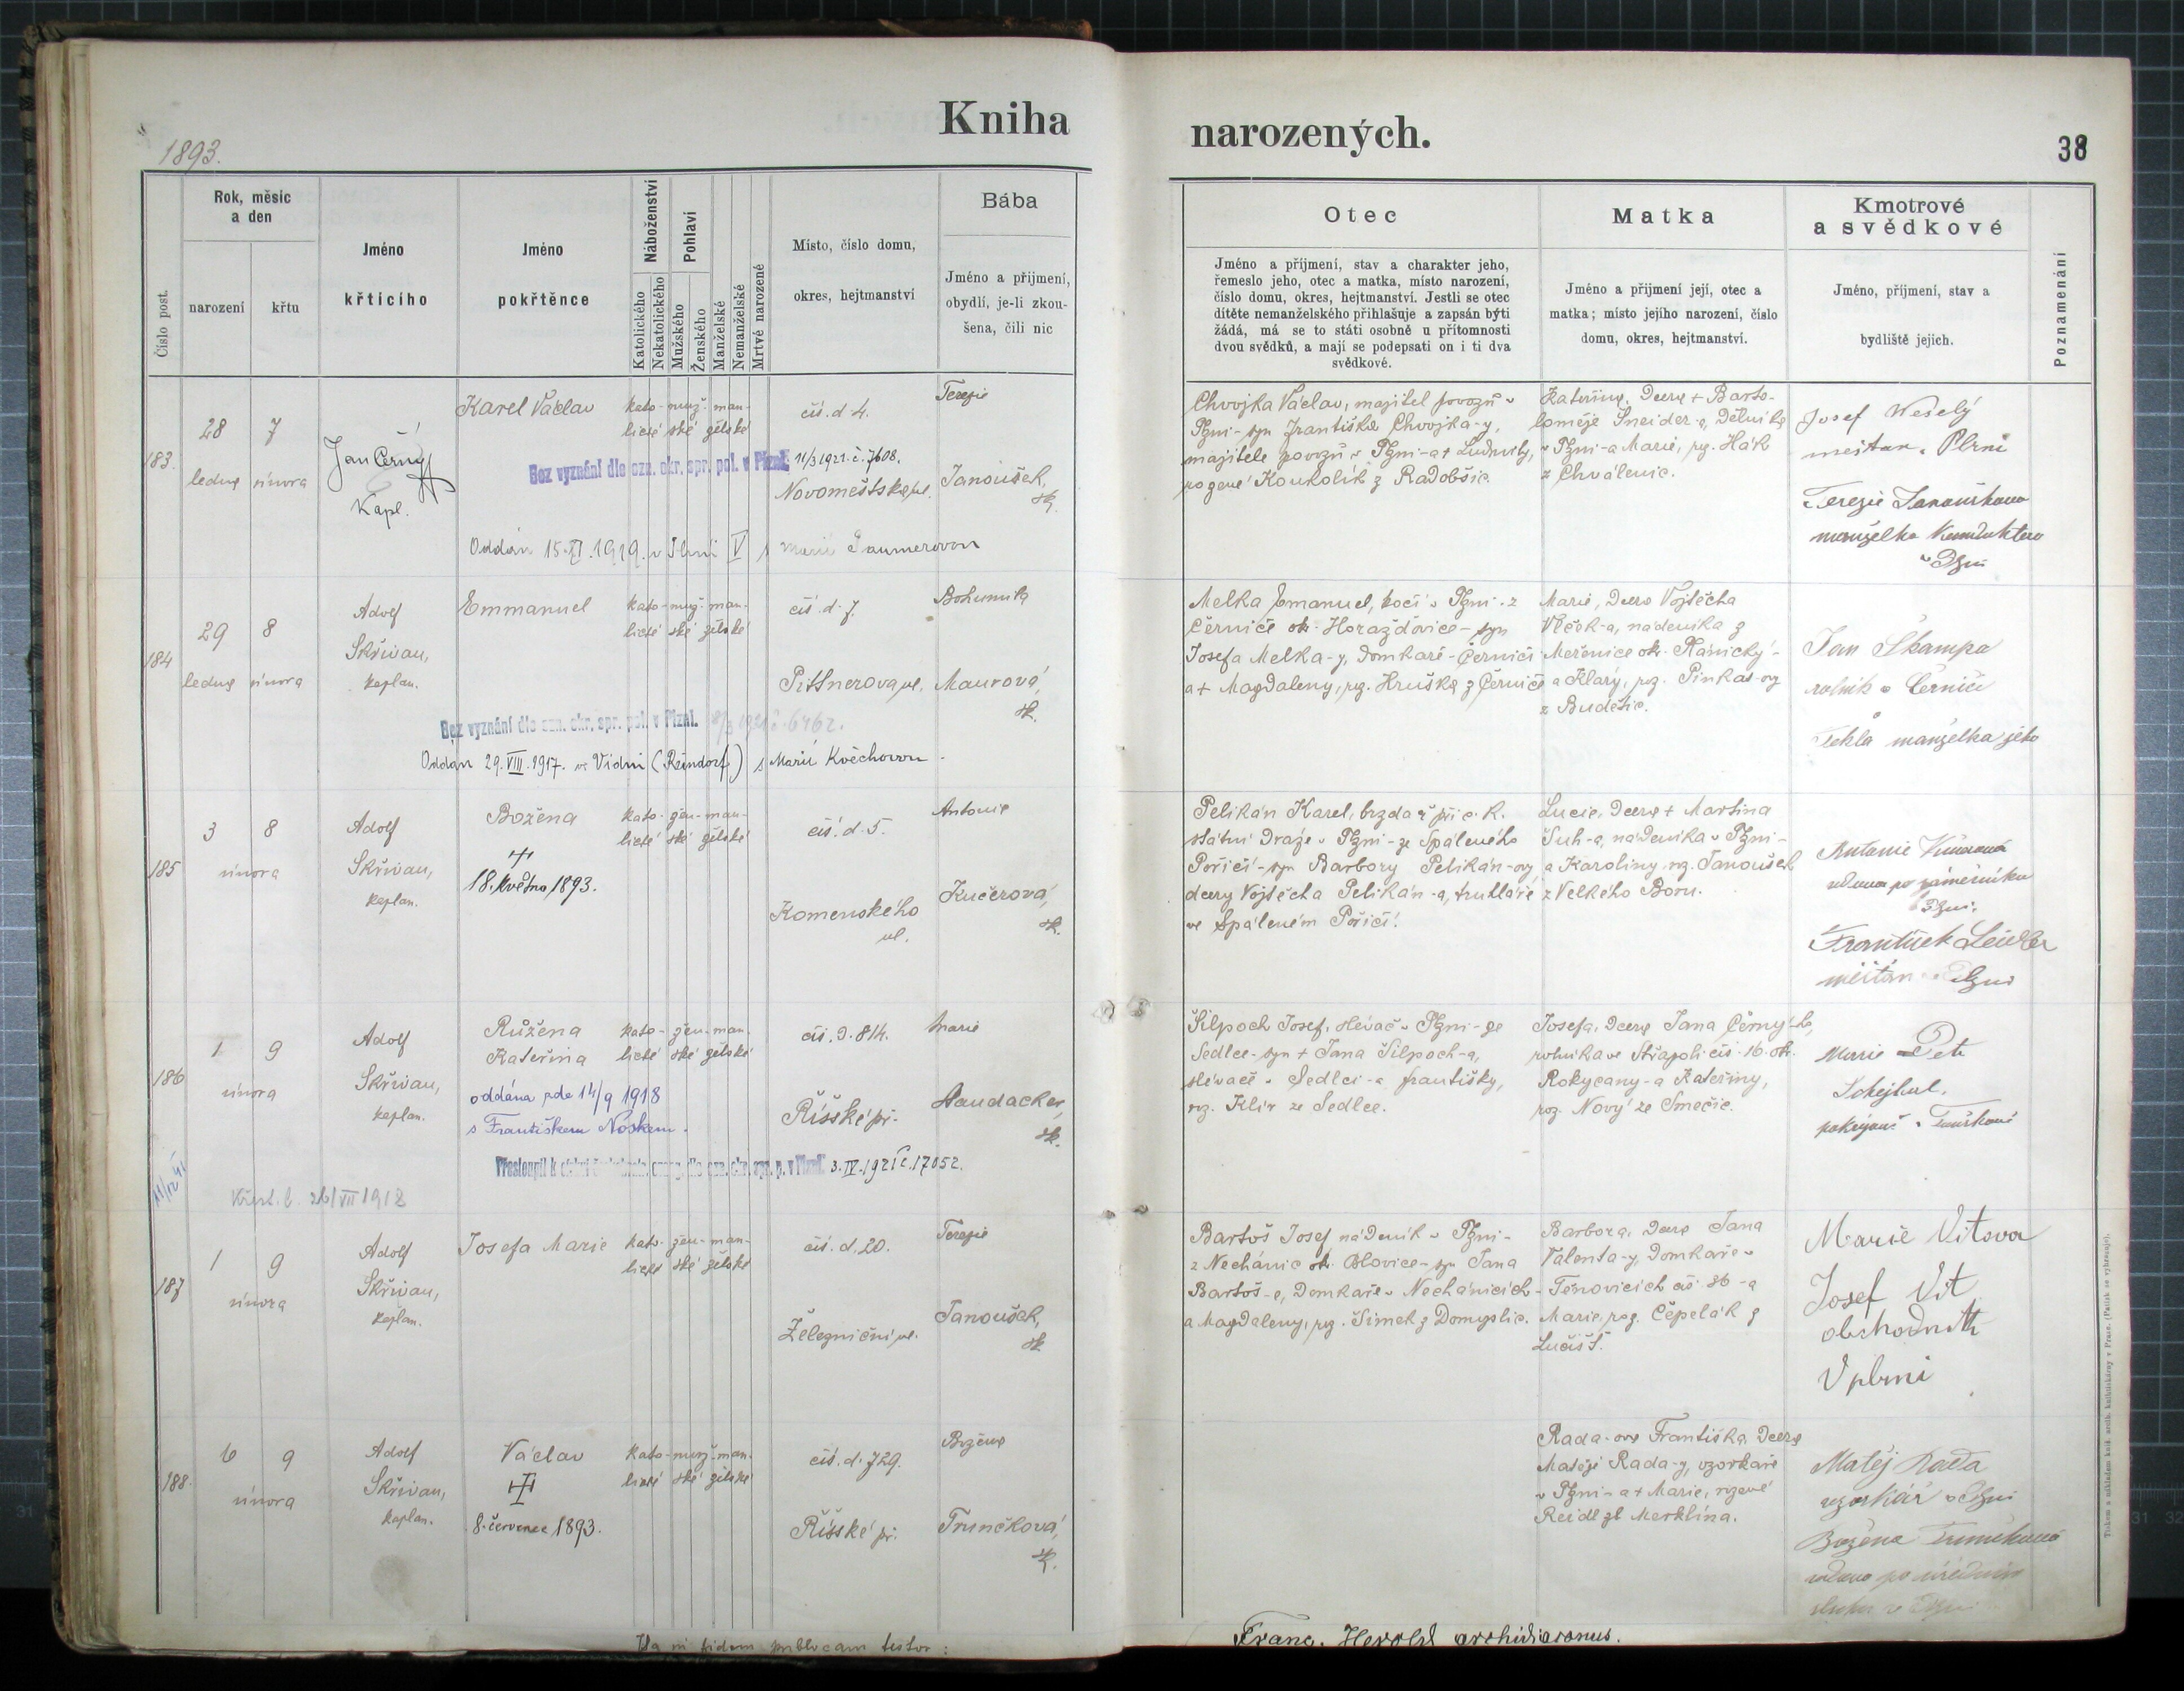 Kniha
narozených.
38
1893.
Číslo post.
Rok, měsíc
a den
narození
křtu
Jméno
křtícího
Jméno
pokřtěnce
Náboženství
Katolického
Nekatolického
Pohlaví
Mužského
Ženského
Manželské
Nemanželské
Mrtvě narozené
Místo, číslo domu,
okres, hejtmanství
Bába
Jméno a přijmení,
obydlí, je-li zkou-
šena, čili nic
Otec
Jméno a příjmení, stav a charakter jeho,
řemeslo jeho, otec a matka, místo narození,
číslo domu, okres, hejtmanství. Jestli se otec
dítěte nemanželského přihlašuje a zapsán býti
žádá, má se to státi osobně u přítomnosti
dvou svědků, a mají se podepsati on i ti dva
svědkové.
Matka
Jméno a přijmení její, otec a
matka; místo jejího narození, číslo
domu, okres, hejtmanství.
Kmotrové
a svědkové
Jméno, příjmení, stav a
bydliště jejich.
Poznamenání
183.
28 7
ledna února
Jan Černý
Kapl.
Karel Václav
kato- muž- man-
lické ské želské
čís. d. 4.
Novoměstská ul.
Terezie
Janoušek,
zk.
Bez vyznání dle ozn. okr. spr. pol. v Plzni. 11/3 1921. č. 7608.
Oddán 15.XI.1919. v Plzni V s Marií
Chvojka Václav, majitel povozů v
Plzni- syn Františka Chvojka-y,
majitele povozů v Plzni-a+ Ludmily,
rozené Koukolík z Radobšic.
Kateřina, dcera + Barto-
loměje Šneider-a, dělníka
v Plzni-a Marie, roz. Hák
z Chválenic.
Josef Weselý
měštan. Plzni
Terezie Janoušková
manželka Konduktera
v Plzni
184
29 8
ledna února
Adolf
Skřivan,
kaplan.
Emmanuel
kato- muž- man-
lické ské želské
čís. d. 7
Pittnerova ul.
Bohumila
Maurová,
zk.
Bez vyznání dle ozn. okr. spr. pol. v Plzni. 8/3 1921 č. 6462.
Oddán 29.VIII.1917. ve Vídni (Reindorf) s Marií Květchovou.
Melka Emanuel, kočí v Plzni- z
Černíče ok. Horažďovice- syn
Josefa Melka-y, domkaře- Černíči
a+ Magdaleny, roz. Hruška z Černíče
Marie, dcera Vojtěcha
Vlček-a, nádeníka z
Měřenice ok. Plánický-
a Kláry, roz. Pinkas-ovy
z Budětic.
Jan Škampa
rolník v Černíči
Tekla manželka jeho
185
3 8
února
Adolf
Skřivan,
kaplan.
Božena
+
18. května 1893.
kato- žen- man-
lické ské želské
čís. d. 5.
Komenského
ul.
Antonie
Kučerová,
zk.
Pelikán Karel, brzdař při c. k.
státní dráze v Plzni- ze Spáleného
Poříčí- syn Barbory Pelikán-ovy,
dcery Vojtěcha Pelikán-a, truhláře
ve Spáleném Poříčí.
Lucie, dcera + Martina
Šuh-a, nádeníka v Plzni-
a Karoliny roz. Janoušek
z Velkého Boru.
Antonie Kučerová
vdova po
Plzni.
František Leidler
měštan v Plzni
186
1 9
února
Adolf
Skřivan,
kaplan.
Růžena
Kateřina
oddána zde 14/9 1918
s Františkem Noskem.
kato- žen- man-
lické ské želské
čís. d. 814.
Říšské př.
Marie
Haudacker,
zk.
3.IV.1921 č. 17052.
Křest. l. 26/VII 1918
Šilpoch Josef, slévač v Plzni- ze
Sedlce- syn + Jana Šilpoch-a,
slévače v Sedlci- a Františky,
roz. Klír ze Sedlce.
Josefa, dcera Jana Černý-ho,
rolníka ve Střapoli čís. 16. ok.
Rokycany- a Kateřiny,
roz. Nový ze Smečic.
Marie
187
1 9
února
Adolf
Skřivan,
kaplan.
Josefa Marie
kato- žen- man-
lické ské želské
čís. d. 20.
Železniční ul.
Terezie
Janoušek,
zk
Bartoš Josef nádeník v Plzni-
z Nechánic ok. Blovice- syn Jana
Bartoš-e, domkaře v Nechánicích-
a Magdaleny, roz. Šimek z Domyslic.
Barbora, dcera Jana
Valenta-y, domkaře v
Těnovicích čís. 36 -a
Marie, roz. Čepelák z
Marie Vitova
Josef Vit
obchodník
V plzni
188.
6 9
února
Adolf
Skřivan,
kaplan.
Václav
8. července 1893.
kato- muž- man-
lické ské želské
čís. d. 729.
Říšské př.
Božena
Trunčková,
zk.
Rada-ova Františka, dcera
Matěje Rada-y, vzorkaře
v Plzni- a+ Marie, rozené
Reidl z Merklína.
Matěj Rada
vzorkář v Plzni
Božena Trunčková
Ita in fidem publicam testor:
Franc. Herold archidiaconus.